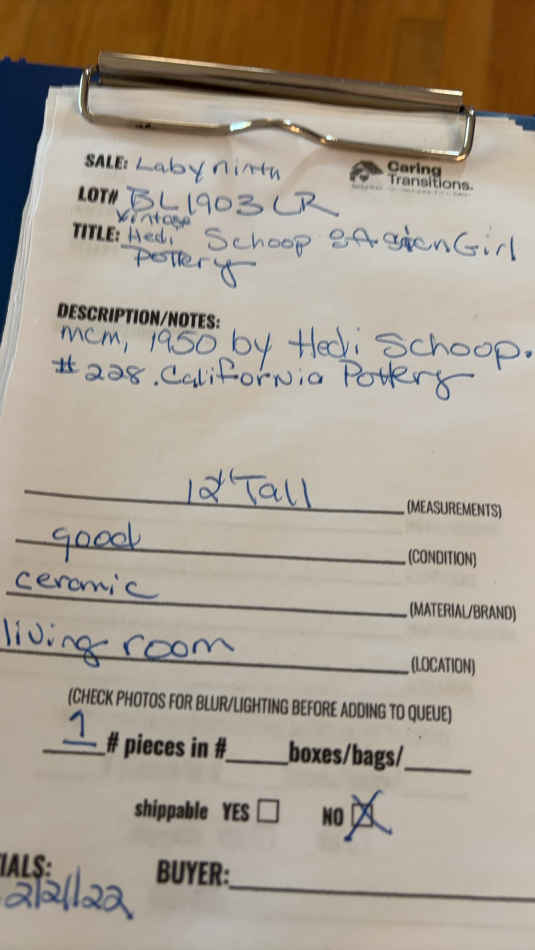 SALE: Labyrinth
Caring
Transitions.
LOT# BL1903 LR
Vintage
TITLE: Hedi Schoop Asian Girl
Pottery
DESCRIPTION/NOTES:
mcm, 1950 by Hedi Schoop.
#228. California Pottery
12" Tall (MEASUREMENTS)
good (CONDITION)
ceramic (MATERIAL/BRAND)
living room (LOCATION)
(CHECK PHOTOS FOR BLUR/LIGHTING BEFORE ADDING TO QUEUE)
1 # pieces in #_____boxes/bags/_____
shippable YES ☐ NO ☒
IALS: BUYER:
2/21/22